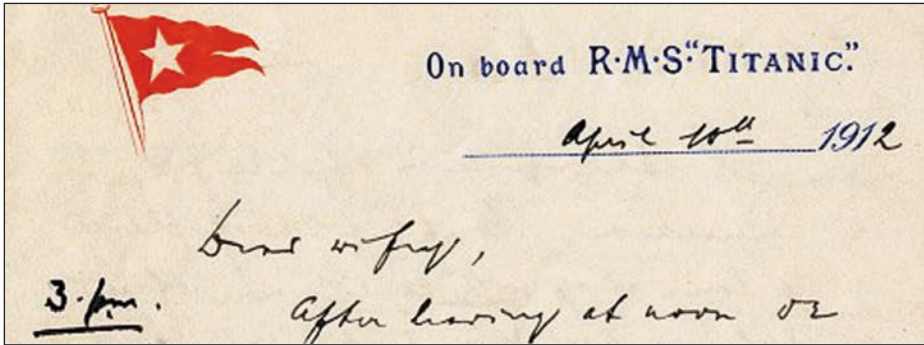 On board R·M·S·"TITANIC".
April 10th 1912
Dear wifey,
3·pm.
After leaving at noon we